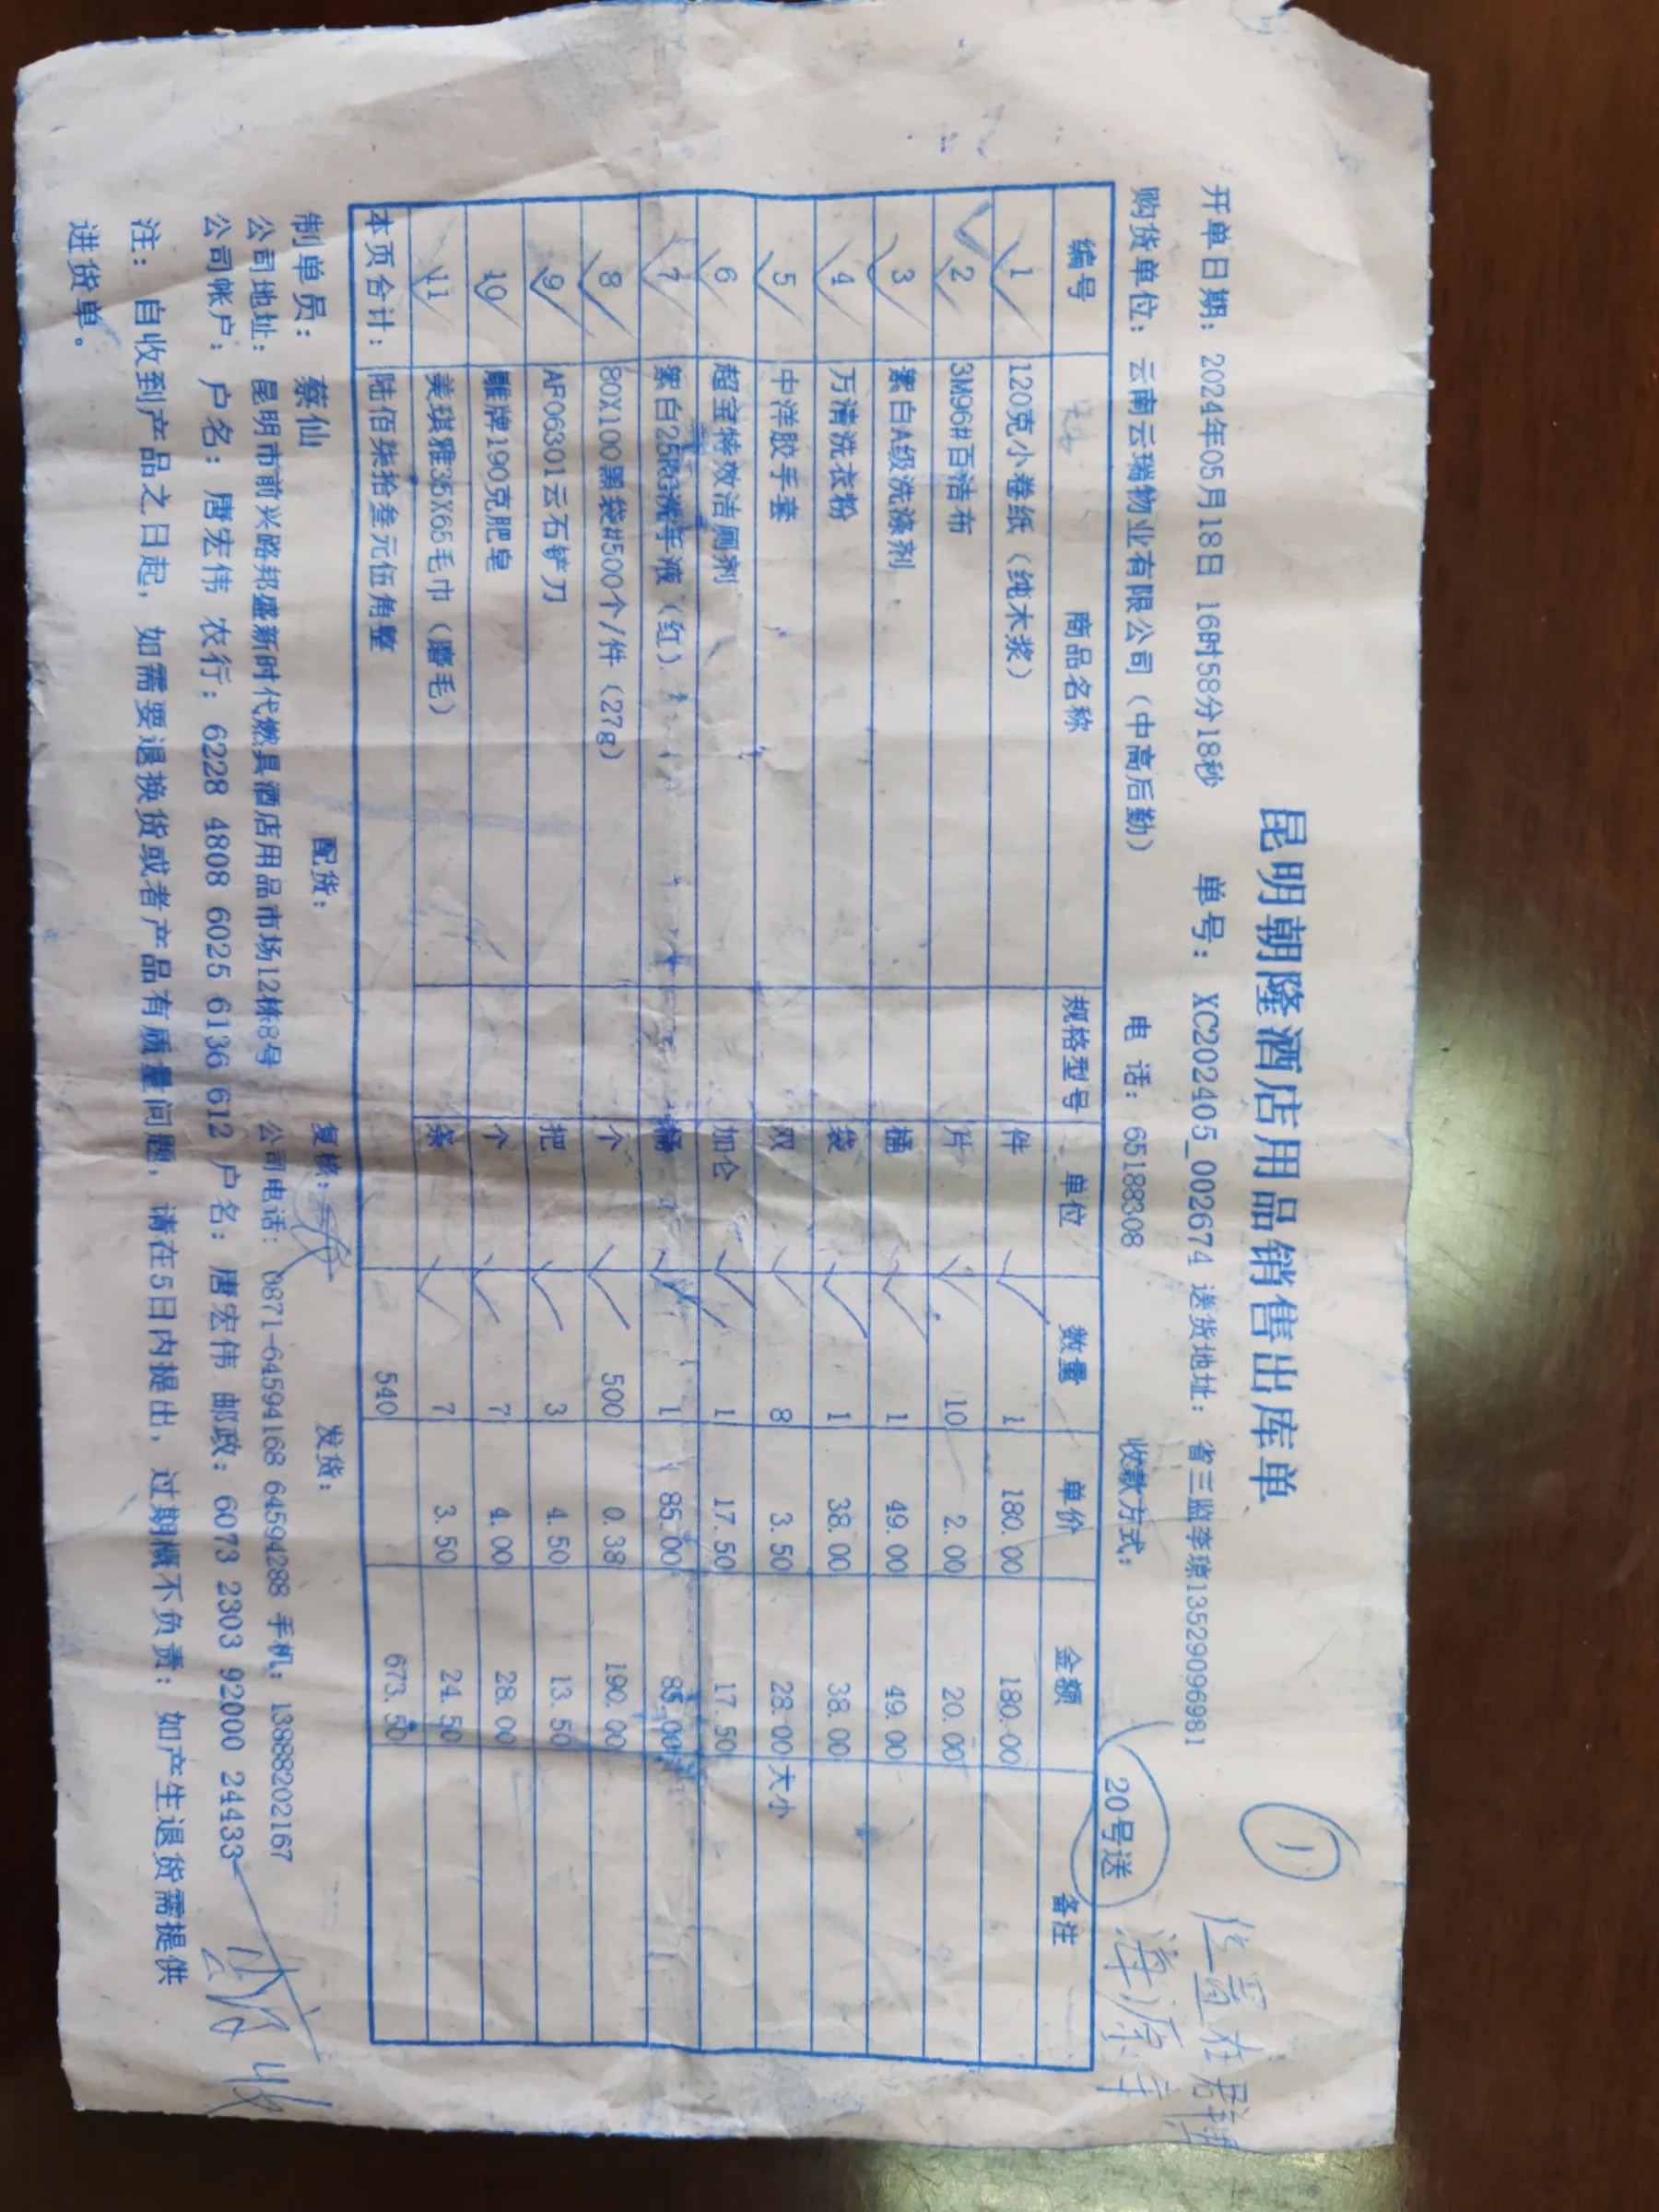 昆明朝隆酒店用品销售出库单
①
开单日期: 2024年05月18日 16时58分18秒 单号: XC202405_002674 送货地址: 省三监李琼13529096981
位置在群里
购货单位: 云南云瑞物业有限公司(中高后勤) 电 话: 65188308 收款方式: 20号送
编号 商品名称 规格型号 单位 数量 单价 金额 备注
1 120克小卷纸(纯木浆) 件 1 180.00 180.00
2 3M96#百洁布 片 10 2.00 20.00
3 絮白A级洗涤剂 桶 1 49.00 49.00
4 万清洗衣粉 袋 1 38.00 38.00
5 中洋胶手套 双 8 3.50 28.00 大小
6 超宝特效洁厕剂 加仑 1 17.50 17.50
7 絮白25KG洗手液(红) 桶 1 85.00 85.00
8 80X100黑袋#500个/件(27g) 个 500 0.38 190.00
9 AF06301云石铲刀 把 3 4.50 13.50
10 雕牌190克肥皂 个 7 4.00 28.00
11 美琪雅35X65毛巾(磨毛) 条 7 3.50 24.50
本页合计: 陆佰柒拾叁元伍角整 540 673.50
制单员: 蔡仙 配货: 复核: 发货:
公司地址: 昆明市前兴路邦盛新时代燃具酒店用品市场12栋8号 公司电话: 0871-64594168 64594288 手机: 13888202167
公司帐户: 户名: 唐宏伟 农行: 6228 4808 6025 6136 612 户名: 唐宏伟 邮政: 6073 2303 92000 24433
注: 自收到产品之日起, 如需要退换货或者产品有质量问题, 请在5日内提出, 过期概不负责; 如产生退货需提供
进货单。